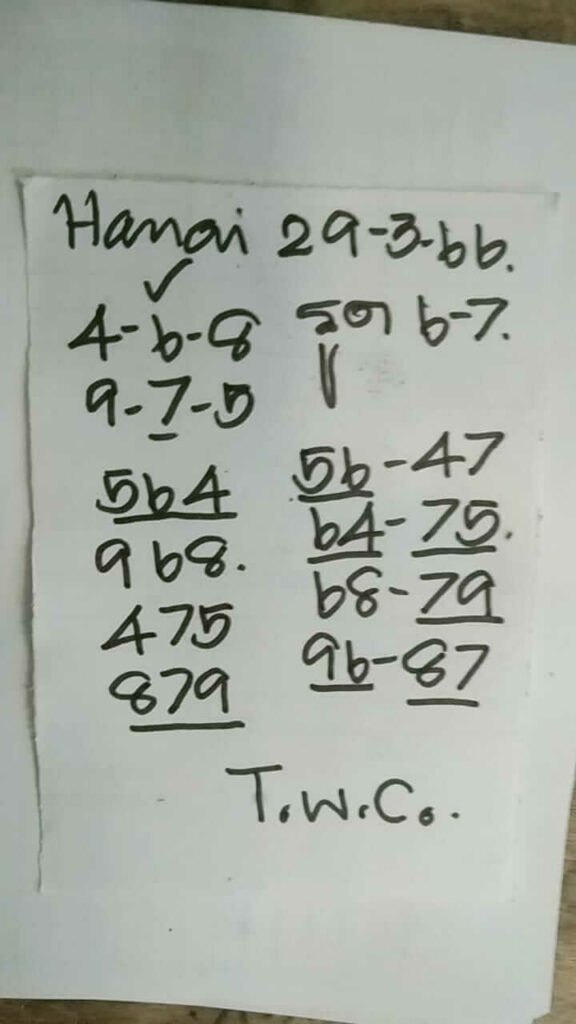 Hanoi 29-3-66.
4-6-8 รูด 6-7.
9-7-5
564 56-47
968. 64-75.
475 68-79
879 96-87
T.W.C..